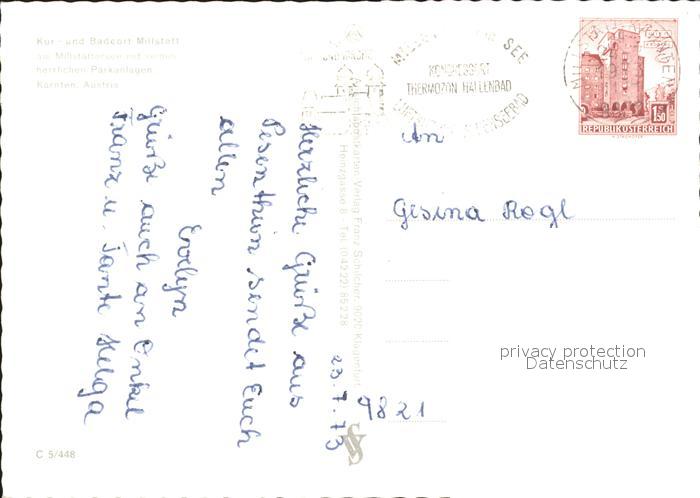 Kur- und Badeort Millstatt
am Millstättersee mit seinen
herrlichen Parkanlagen
Kärnten, Austria
SEE
KONGRESSORT
THERMOZON HALLENBAD
1.50
REPUBLIK ÖSTERREICH
An
Gesina Rogl
9821
privacy protection
Datenschutz
23.7.73
Herzliche Grüße aus
Pesenthein sendet Euch
allen
Evelyn
Grüße auch an Onkel
Franz u. Tante Helga
Verlag Franz Schilcher, 9020 Klagenfurt
Heinzgasse 8 - Tel. (04222) 85 2 28
C 5/448